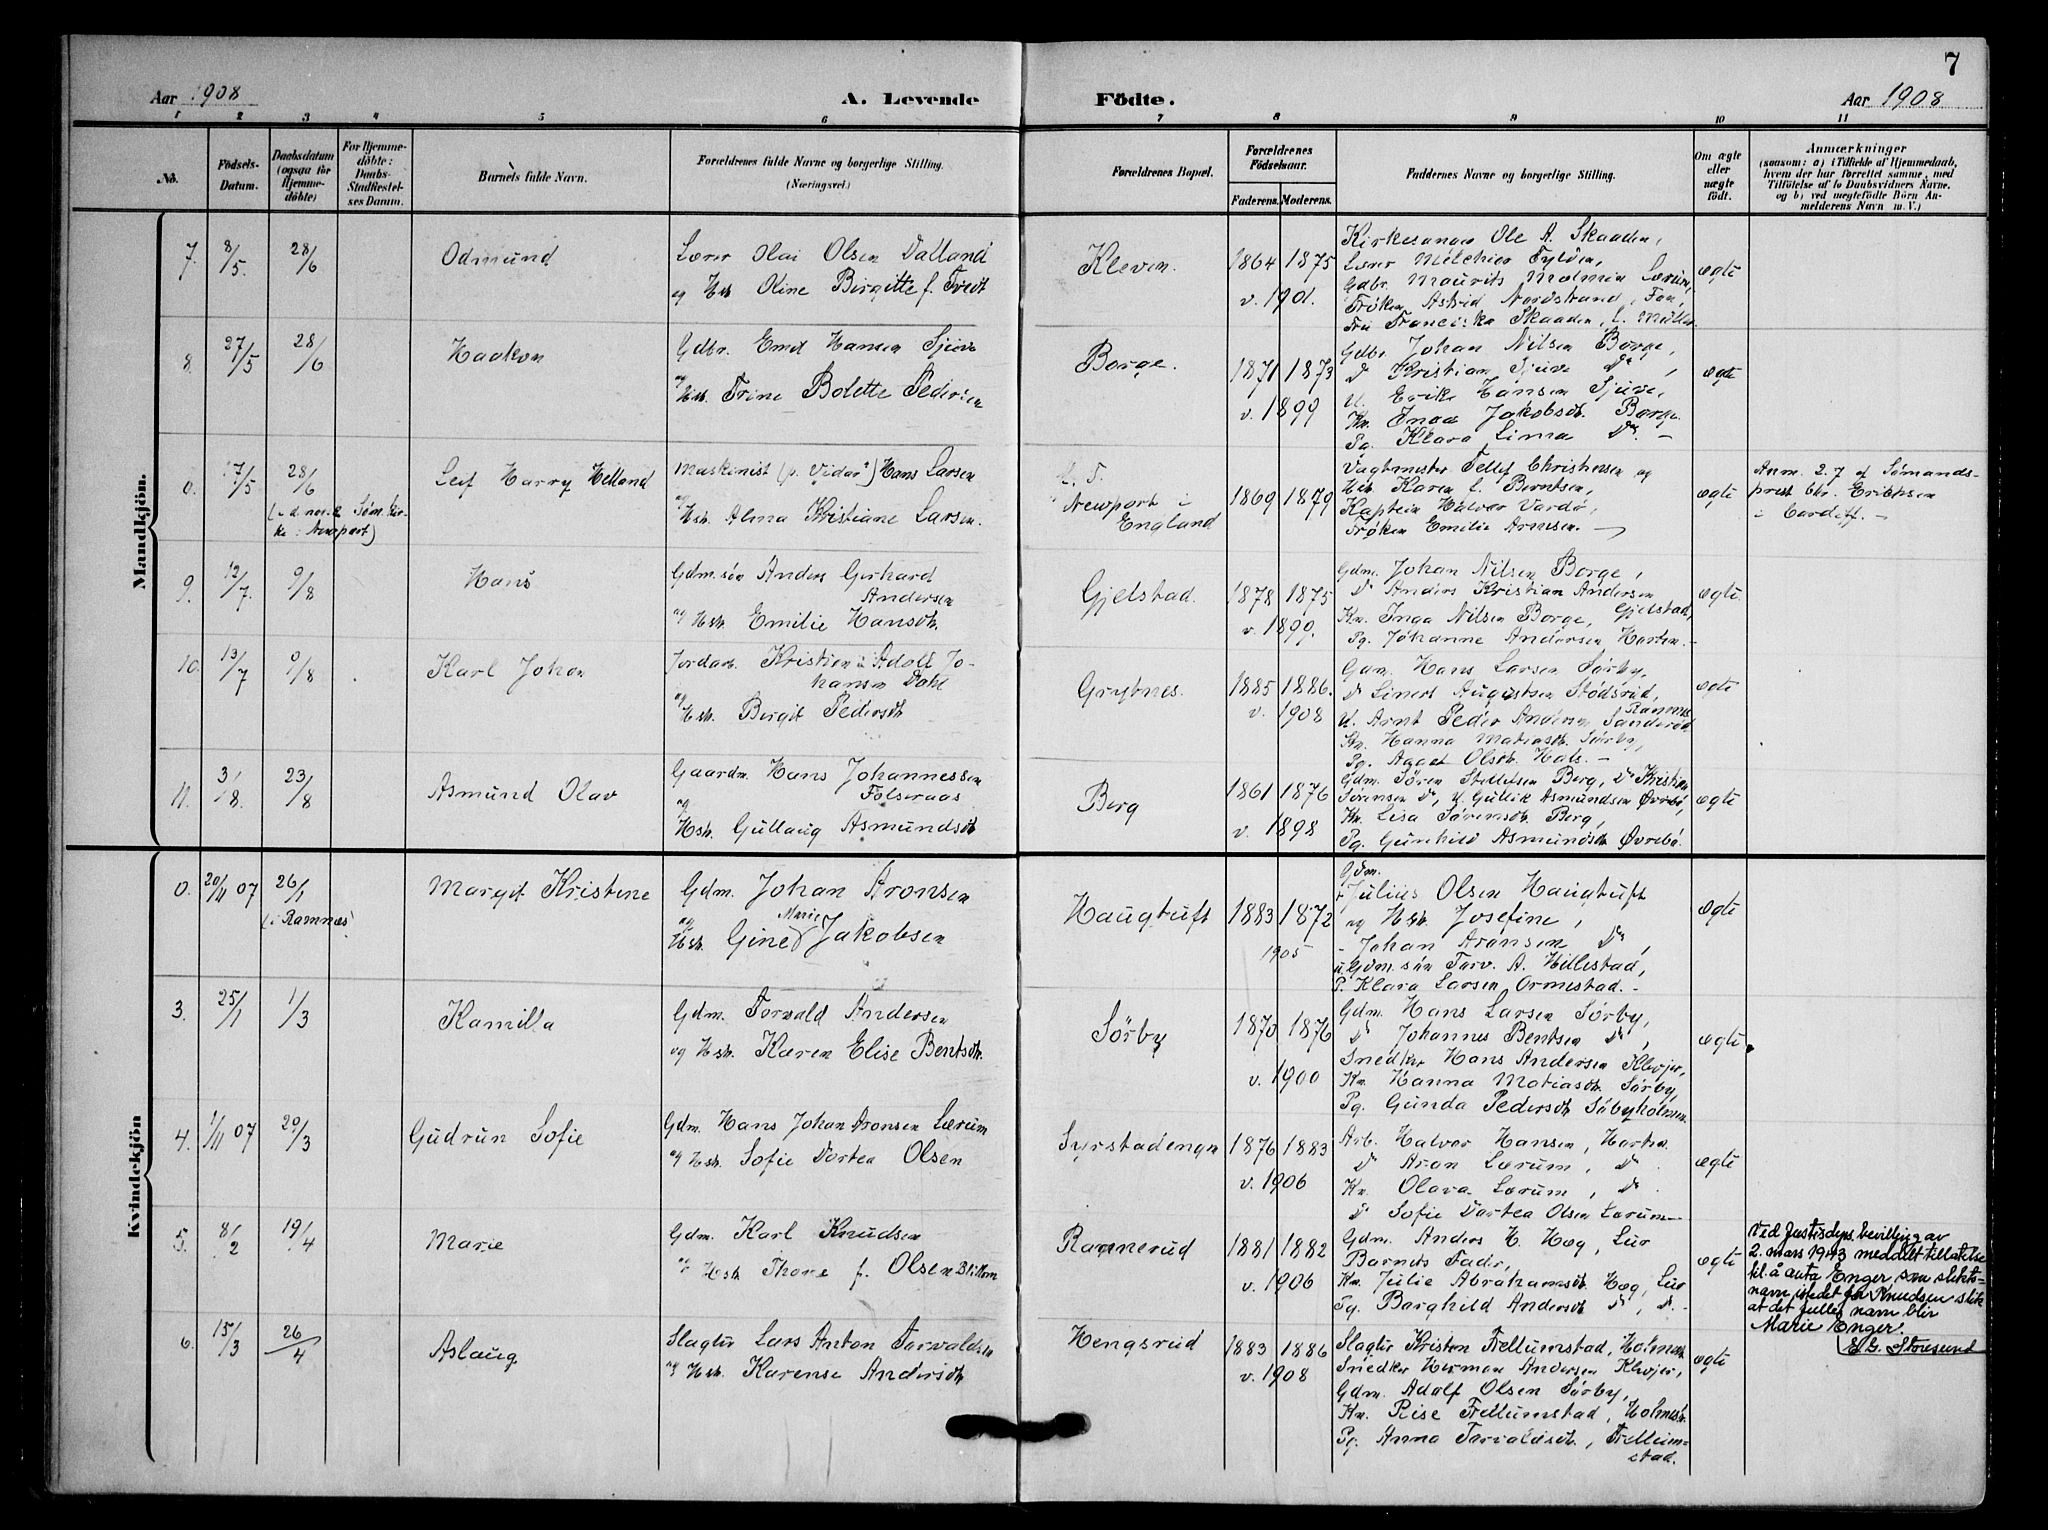 7
Aar 1908
A. Levende
Födte.
Aar 1908
1 2 3 4 5 6 7 8 9 10 11
No.
Födsels-
Datum.
Daabsdatum
(ogsaa for
Hjemme-
döbte)
For Hjemme-
döbte:
Daabs-
Stadfæstel-
ses Datum.
Barnets fulde Navn.
Forældrenes fulde Navne og borgerlige Stilling.
(Næringsvei.)
Forældrenes Bopæl.
Forældrenes
Födselsaar.
Faderens. Moderens.
Faddernes Navne og borgerlige Stilling.
Om ægte
eller
uægte
födt.
Anmærkninger
(saasom: a) i Tilfælde af Hjemmedaab,
hvem der har forrettet samme, med
Tilföielse af to Daabsvidners Navne.
og b) ved uægtefödte Börn An-
melderens Navn m. V.)
Mandkjön.
7. 8/5. 28/6
Odmund
Lærer Olai Olsen Dalland
og Hst. Oline Birgitte f. Tvedt
Kleven.
1864 1875
v. 1901.
Kirkesanger Ole A. Skaaden,
Lærer Melchior Fylden,
Gdbr. Maurits Molmen Lærum,
Frøken Astrid Nordstrand, Fon,
Fru Franciska Skaaden, f. Müller
ægte
8. 27/5 28/6
Haakon
Gdbr. Emil Hansen Sjuve
og Hst. Trine Bolette Pedersen
Borge.
1871 1873
v. 1899
Gdbr. Johan Nilsen Borge,
Do Kristian Sjuve Do,
U. Erik Hansen Sjuve,
Kv. Inga Jakobsdt. Borge.
Pg. Klara Lima Do. -
ægte
0. 17/5 28/6
(i d. norske Søm.kir-
ke i Newport)
Leif Harry Helland
Maskinist (p. "Vidar") Hans Larsen
og Hst. Alma Kristiane Larsen.
Newport i
England
1869 1879
Vagtmester Tellef Christensen og
Hst. Karen f. Berntsen,
Kaptein Halvor Vardø,
Frøken Emilie Arnesen. -
ægte
Anm. 2.7 af Sømands-
prest Chr. Eriksen
i Cardiff. -
9. 12/7. 9/8
Hans
Gdm.søn Anders Gerhard
Andersen
og Hst. Emilie Hansdt.
Gjelstad
1878 1875
v. 1899.
Gdm. Johan Nilsen Borge,
Do Anders Kristian Andersen
Gjelstad,
Kv. Inga Nilsen Borge,
Pg. Johanne Andersen Horten. -
ægte.
10. 13/7 9/8
Karl Johan
Jordarb. Kristian Adolf Jo-
hansen Dahl
og Hst. Bergit Pedersdt.
Grytnes.
1885 1886.
v. 1908
Gdm. Hans Larsen Sørby,
Do Liners Augustsen Stødsrud,
Ramnes
U. Arnt Peder Andersen Sanderød
Kv. Hanna Matiasdt. Sørby,
Pg. Agaet Olsdt. Hals. -
ægte
11. 3/8. 23/8
Asmund Olav
Gaardm. Hans Johannessen
Folseraas
og Hst. Gullaug Asmundsdt.
Berg
1861 1876
v. 1898
Gdm. Søren Stellefsen Berg, Do Kristian
Sørensen Do, U. Gullik Asmundsen Øvrebø,
Kv. Lisa Sørensdt. Berg,
Pg. Gunhild Asmundsdt. Øvrebø.
ægte
Kvindekjön
0. 20/11 07 26/1
(i Ramnes)
Margit Kristine
Gdm. Johan Aronsen
og Hst. Gine Marie Jakobsen
Haugtuft
1883 1872
1905
Gdm.
Julius Olsen Haugtuft
og Hst. Josefine,
- Johan Aronsen Do,
U. Gdm.søn Torv. A. Hillestad,
P. Klara Larsen Ormestad. -
ægte
3. 25/1 1/3
Kamilla
Gdm. Torvald Andersen
og Hst. Karen Elise Bentsdt.
Sörby
1870 1876
v. 1900
Gdm. Hans Larsen Sørby,
Do Johannes Bentsen Do,
Snedker Hans Andersen Klevjer,
Kv. Hanna Matiasdt. Sørby,
Pg. Gunda Pedersdt Søbyholmen.
ægte
4. 1/11 07 29/3
Gudrun Sofie
Gdm. Hans Johan Aronsen Lærum
og Hst. Sofie Dortea Olsen
Syrstadengn
1876 1883
v. 1906
Arb. Halvor Hansen, Horten.
Do Aron Lærum, Do.
Kv. Olava Lærum, Do.
Do Sofie Dortea Olsen Lærum -
ægte
5. 8/2 19/4
Marie
Gdm. Karl Knudsen
og Hst. Thora f. Olsen
Rannerud
1881 1882
v. 1906
Gdm. Anders H. Høg, Lur
Barnets Fader,
Kv. Julie Abrahamsdt. Høg, Lur
Pg. Borghild Andersdt Do, Do. -
ægte
Ved Justisdeps. bevilling av
2. mars 1943 meddelt tillatelse
til å anta Enger som slekts-
navn istedet for Knudsen slik
at det fulle navn blir
Marie Enger.
E.G. Storesund
6. 15/3 26/4
Aslaug
Slagter Lars Anton Torvaldsen
og Hst. Karense Andersdt.
Hengsrud
1883 1886
v. 1908
Slagter Kristen Tellumstad, Holmestr.
Snedker Herman Andersen Klevjer,
Gdm. Adolf Olsen Sørby,
Kv. Rise Tellumstad, Holmestr.
Pg. Anna Torvaldsdt., Tellum-
stad.
ægte